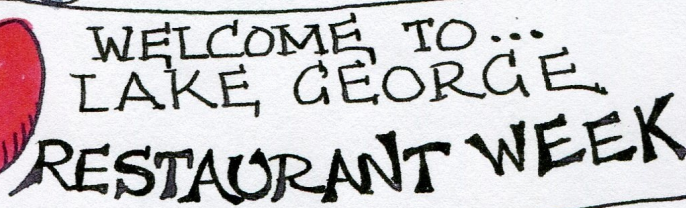 WELCOME TO...
LAKE GEORGE
RESTAURANT WEEK